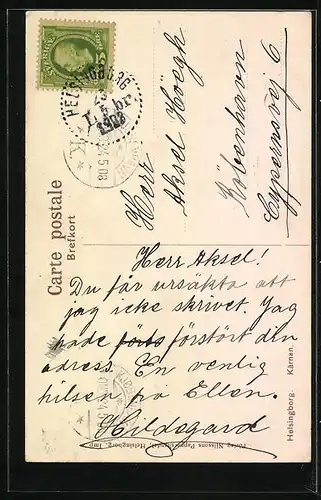 SVERIGE
HELSINGBORG
23
5
1908
L. br
K
24.5.08
Carte postale
Brefkort
Herr
Aksel Höegh
Köbenhavn
Cypernsvej 6
Herr Aksel!
Du får ursäkta att
jag icke skrivet. Jag
hade förts förstört din
adress. En venlig
hilsen fra Ellen.
Hildegard
Helsingborg. Kärnan.
Förlag Nilssons Pappershandel, Helsingborg, Imp.